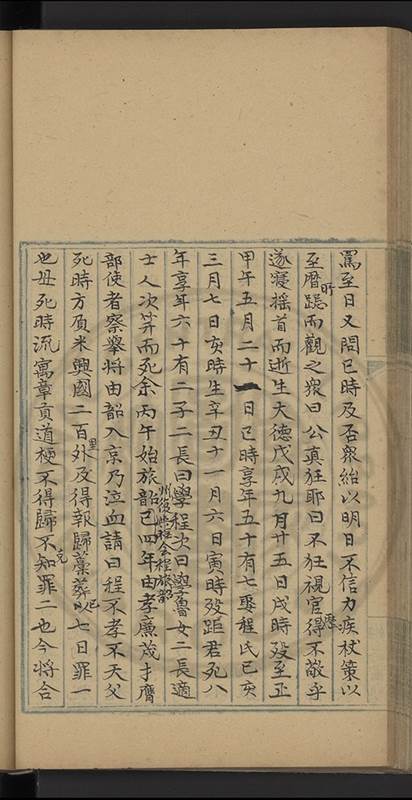 罵至日又問巳時及否衆紿以明日不信力疾杖策以
至曆所踞而觀之衆曰公真狂耶曰不狂視官曆得不敬乎
遂寢搖首而逝生大德戊戌九月廿五日戌時殁至正
甲午五月二十一日巳時享年五十有七娶程氏己亥
三月七日亥時生辛丑十一月六日寅時殁距君死八
年享年六十有二子二長曰學程次曰學魯女二長適
士人次笄而死余丙午始旅韶已四年由孝廉茂才膺
部使者察舉將由韶入京乃泣血請曰程不孝不天父
死時方負米興國二百里外及得報歸藁葬已七日罪一
也母死時流寓章貢道梗不得歸不知死罪二也今將合